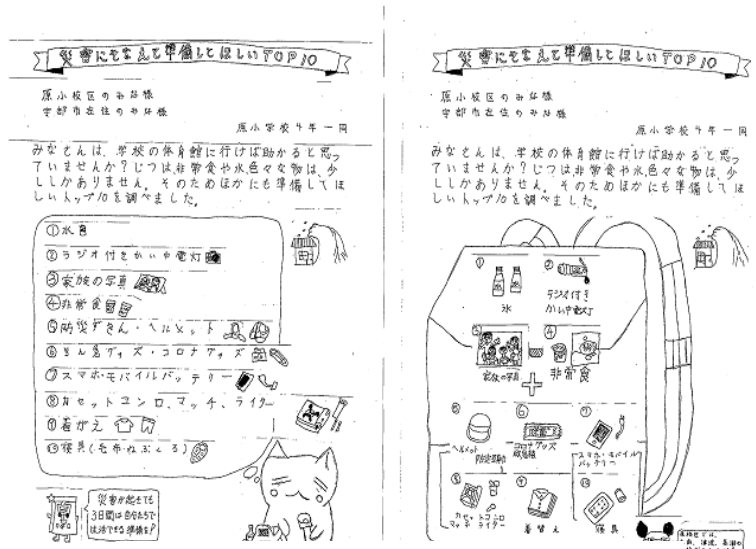 災害にそなえて準備してほしいTOP10
原小校区のみな様
宇部市在住のみな様
原小学校4年一同
みなさんは、学校の体育館に行けば助かると思っ
ていませんか?じつは非常食や水色々な物は、少
ししかありません。そのためほかにも準備してほ
しいトップ10を調べました。
①水
②ラジオ付きかい中電灯
③家族の写真
④非常食
⑤防災ずきん・ヘルメット
⑥えい急グッズ・コロナグッズ
⑦スマホ・モバイルバッテリー
⑧カセットコンロ、マッチ、ライター
⑨着がえ
⑩寝具(毛布・ねぶくろ)
災害が起きても
3日間は自分たちで
生活できる準備を!
災害にそなえて準備してほしいTOP10
原小校区のみな様
宇部市在住のみな様
原小学校4年一同
みなさんは、学校の体育館に行けば助かると思っ
ていませんか?じつは非常食や水色々な物は、少
ししかありません。そのためほかにも準備してほ
しいトップ10を調べました。
①
②
水
ラジオ付き
かい中電灯
③
④
家族の写真
非常食
⑤
⑥
⑦
ヘルメット
コロナグッズ
スマホ・モバイル
バッテリー
⑧
⑨
⑩
カセットコンロ
マッチ ライター
着替え
寝具